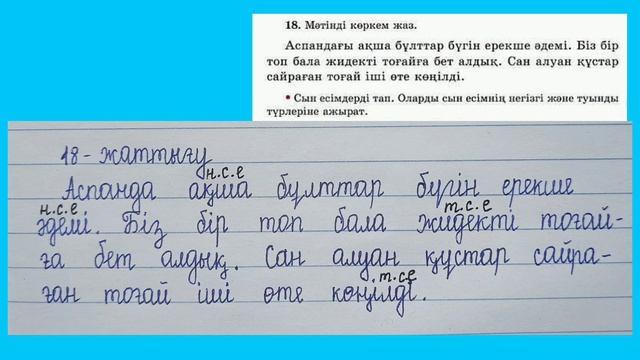 18. Мәтінді көркем жаз.
Аспандағы ақша бұлттар бүгін ерекше әдемі. Біз бір
топ бала жидекті тоғайға бет алдық. Сан алуан құстар
сайраған тоғай іші өте көңілді.
• Сын есімдерді тап. Оларды сын есімнің негізгі және туынды
түрлеріне ажырат.
18 - жаттығу
н.с.е
Аспанда ақша бұлттар бүгін ерекше
н.с.е т.с.е
әдемі. Біз бір топ бала жидекті тоғай-
ға бет алдық. Сан алуан құстар сайра-
т.с.е
ған тоғай іші өте көңілді.